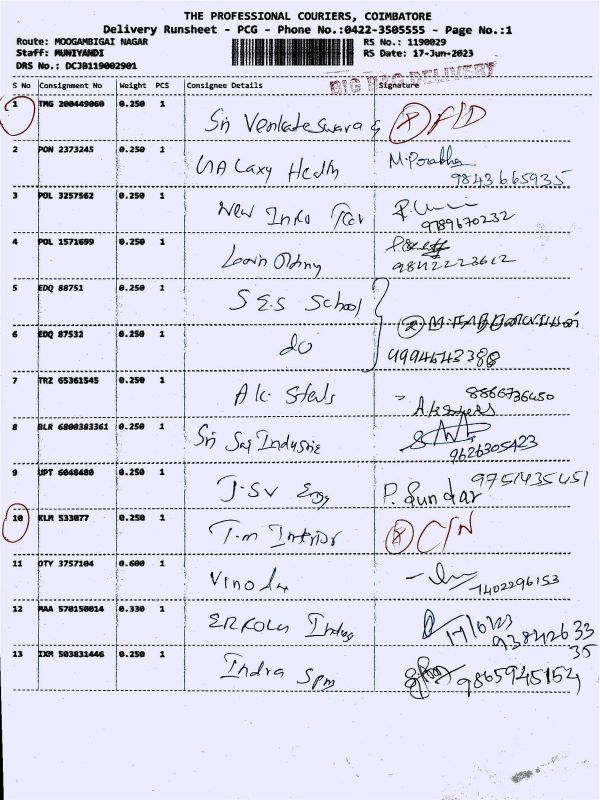 THE PROFESSIONAL COURIERS, COIMBATORE
Delivery Runsheet - PCG - Phone No.:0422-3505555 - Page No.:1
Route: MOOGAMBIGAI NAGAR RS No.: 1190029
Staff: MUNIYANDI RS Date: 17-Jun-2023
DRS No.: DCJB119002901
BIG BAG DELIVERY
S No Consignment No Weight PCS Consignee Details Signature
1 TMG 200449060 0.250 1 Sri Venkateswara
2 PON 2373245 0.250 1 Health M. Prabha
9843665935
3 POL 3257562 0.250 1 New Info
9789670232
4 POL 1571699 0.250 1
9842223612
5 EDQ 88751 0.250 1 S.E.S School
6 EDQ 87532 0.250 1 do
9994643388
7 TRZ 65361545 0.250 1 A.K. Steels 8866736450
8 BLR 6800383361 0.250 1 Sri Sai Industrie
9626305423
9 UPT 6048480 0.250 1 J.S.V Engg P. Sundar 9751435451
10 KLM 533077 0.250 1 T.M Interior C/N
11 OTY 3757104 0.600 1 Vinoda
7402296153
12 MAA 570150014 0.330 1 Indus 17/6/23
9384263335
13 IXM 503831446 0.250 1 Indra Spm 9865945154